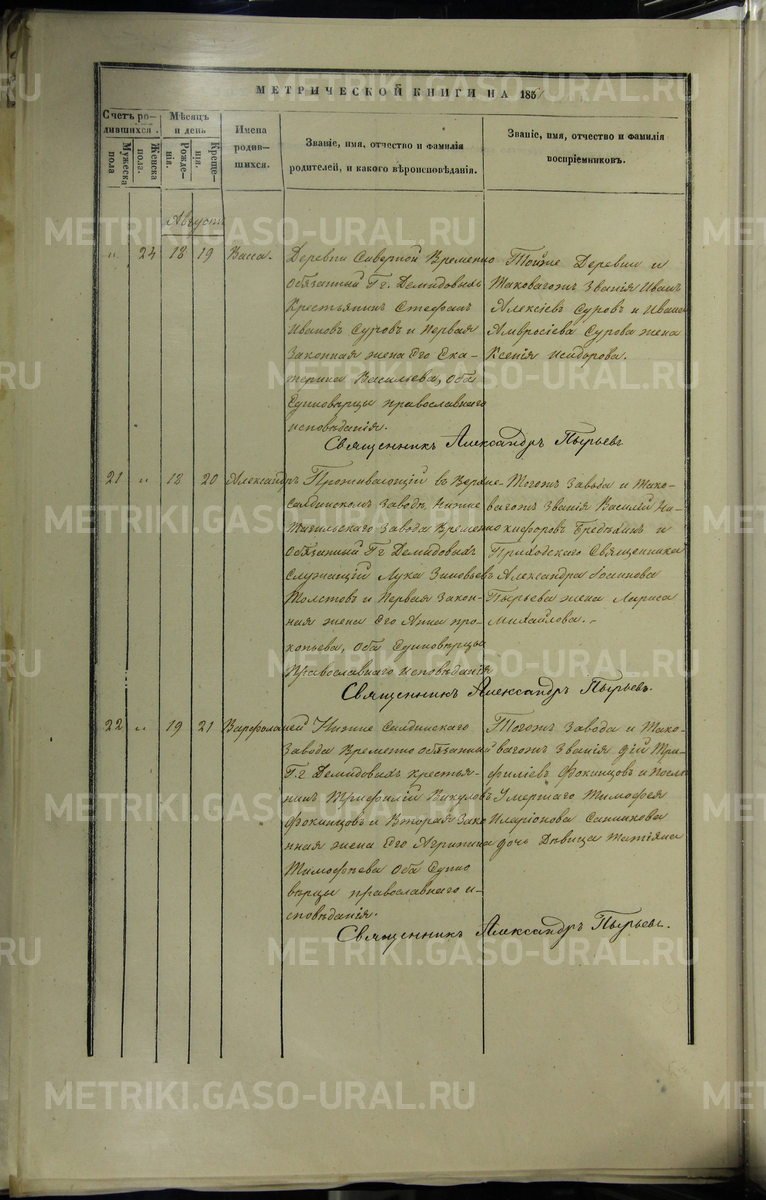 МЕТРИЧЕСКОЙ КНИГИ НА 1851
Счетъ родившихся.
Мужеска пола
Женска пола.
Мѣсяцъ и день
Рожденія.
Крещенія.
Имена родившихся.
Званіе, имя, отчество и фамилія
родителей, и какого вѣроисповѣданія.
Званіе, имя, отчество и фамилія
воспріемниковъ.
Августъ
" 24 18 19 Васса.
Деревни Сиверной Временно
обязанный Гг. Демидовыхъ
Крестьянинъ Стефанъ
Ивановъ Суровъ и Первая
Законная жена Его Ека-
терина Васильева, оба
Единовѣрцы православнаго
исповѣданія.
Тойже Деревни и
Таковагожъ Званія Иванъ
Алексіевъ Суровъ и Ивана
Амвросіева Сурова жена
Ксенія Исидорова.
Священникъ Александръ Пырьевъ
21 " 18 20 Александръ
Проживающій въ Верхне-
салдинскомъ Заводѣ, Нижне
Тагильскаго Завода Временно
обязанный Гг. Демидовыхъ
Служащій Лука Зиновьевъ
Толстовъ и Первая Закон-
ная жена Его Анна про-
копьева, оба Единовѣрцы
Православнаго исповѣданія
Тогожъ Завода и Тако-
вагожъ Званія Василій Ни-
кифоровъ и
Приходскаго Священника
Александра Іоаннова
Пырьева жена Лариса
Михайлова.
Священникъ Александръ Пырьевъ.
22 " 19 21 Варфоломей
Нижне Салдинскаго
Завода Временно обязанный
Гг. Демидовыхъ крестья-
нинъ Трифилій Викуловъ
Фокинцовъ и Вторая Зако
нная жена Его Агрипина
Тимофѣева оба Едино
вѣрцы православнаго и-
сповѣданія.
Тогожъ Завода и Тако-
вагожъ Званія Три-
филіевъ Фокинцовъ и Послѣ
Умершаго Тимофея
Иларіонова Санникова
дочь Дѣвица Татіяна
Священникъ Александръ Пырьевъ.
METRIKI.GASO-URAL.RU